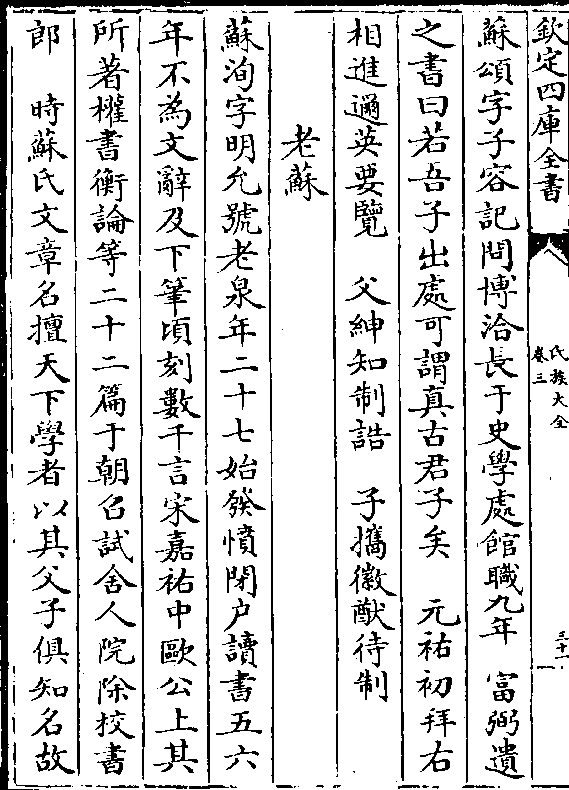 欽定四庫全書
氏族大全
卷三
三十一
蘇頌字子容記問博洽長于史學處館職九年　富弼遺
之書曰若吾子出處可謂真古君子矣　元祐初拜右
相進邇英要覽　父紳知制誥　子攜徽猷待制
老蘇
蘇洵字明允號老泉年二十七始發憤閉户讀書五六
年不為文辭及下筆頃刻數千言宋嘉祐中歐公上其
所著權書衡論等二十二篇于朝召試舍人院除校書
郎　時蘇氏文章名擅天下學者以其父子俱知名故